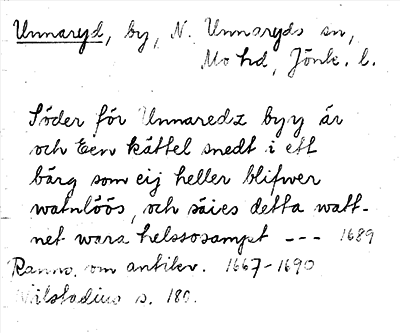 Unnaryd, by, N. Unnaryds sn,
Mo hd, Jönk. l.
Söder för Unnaredz byy är
och Een kättel snedt i ett
bärg som eij heller blifwer
watnlöös, och säies detta watt-
net wara helsosampt --- 1689
Ranns. om antikv. 1667-1690
Wilstadius s. 180.